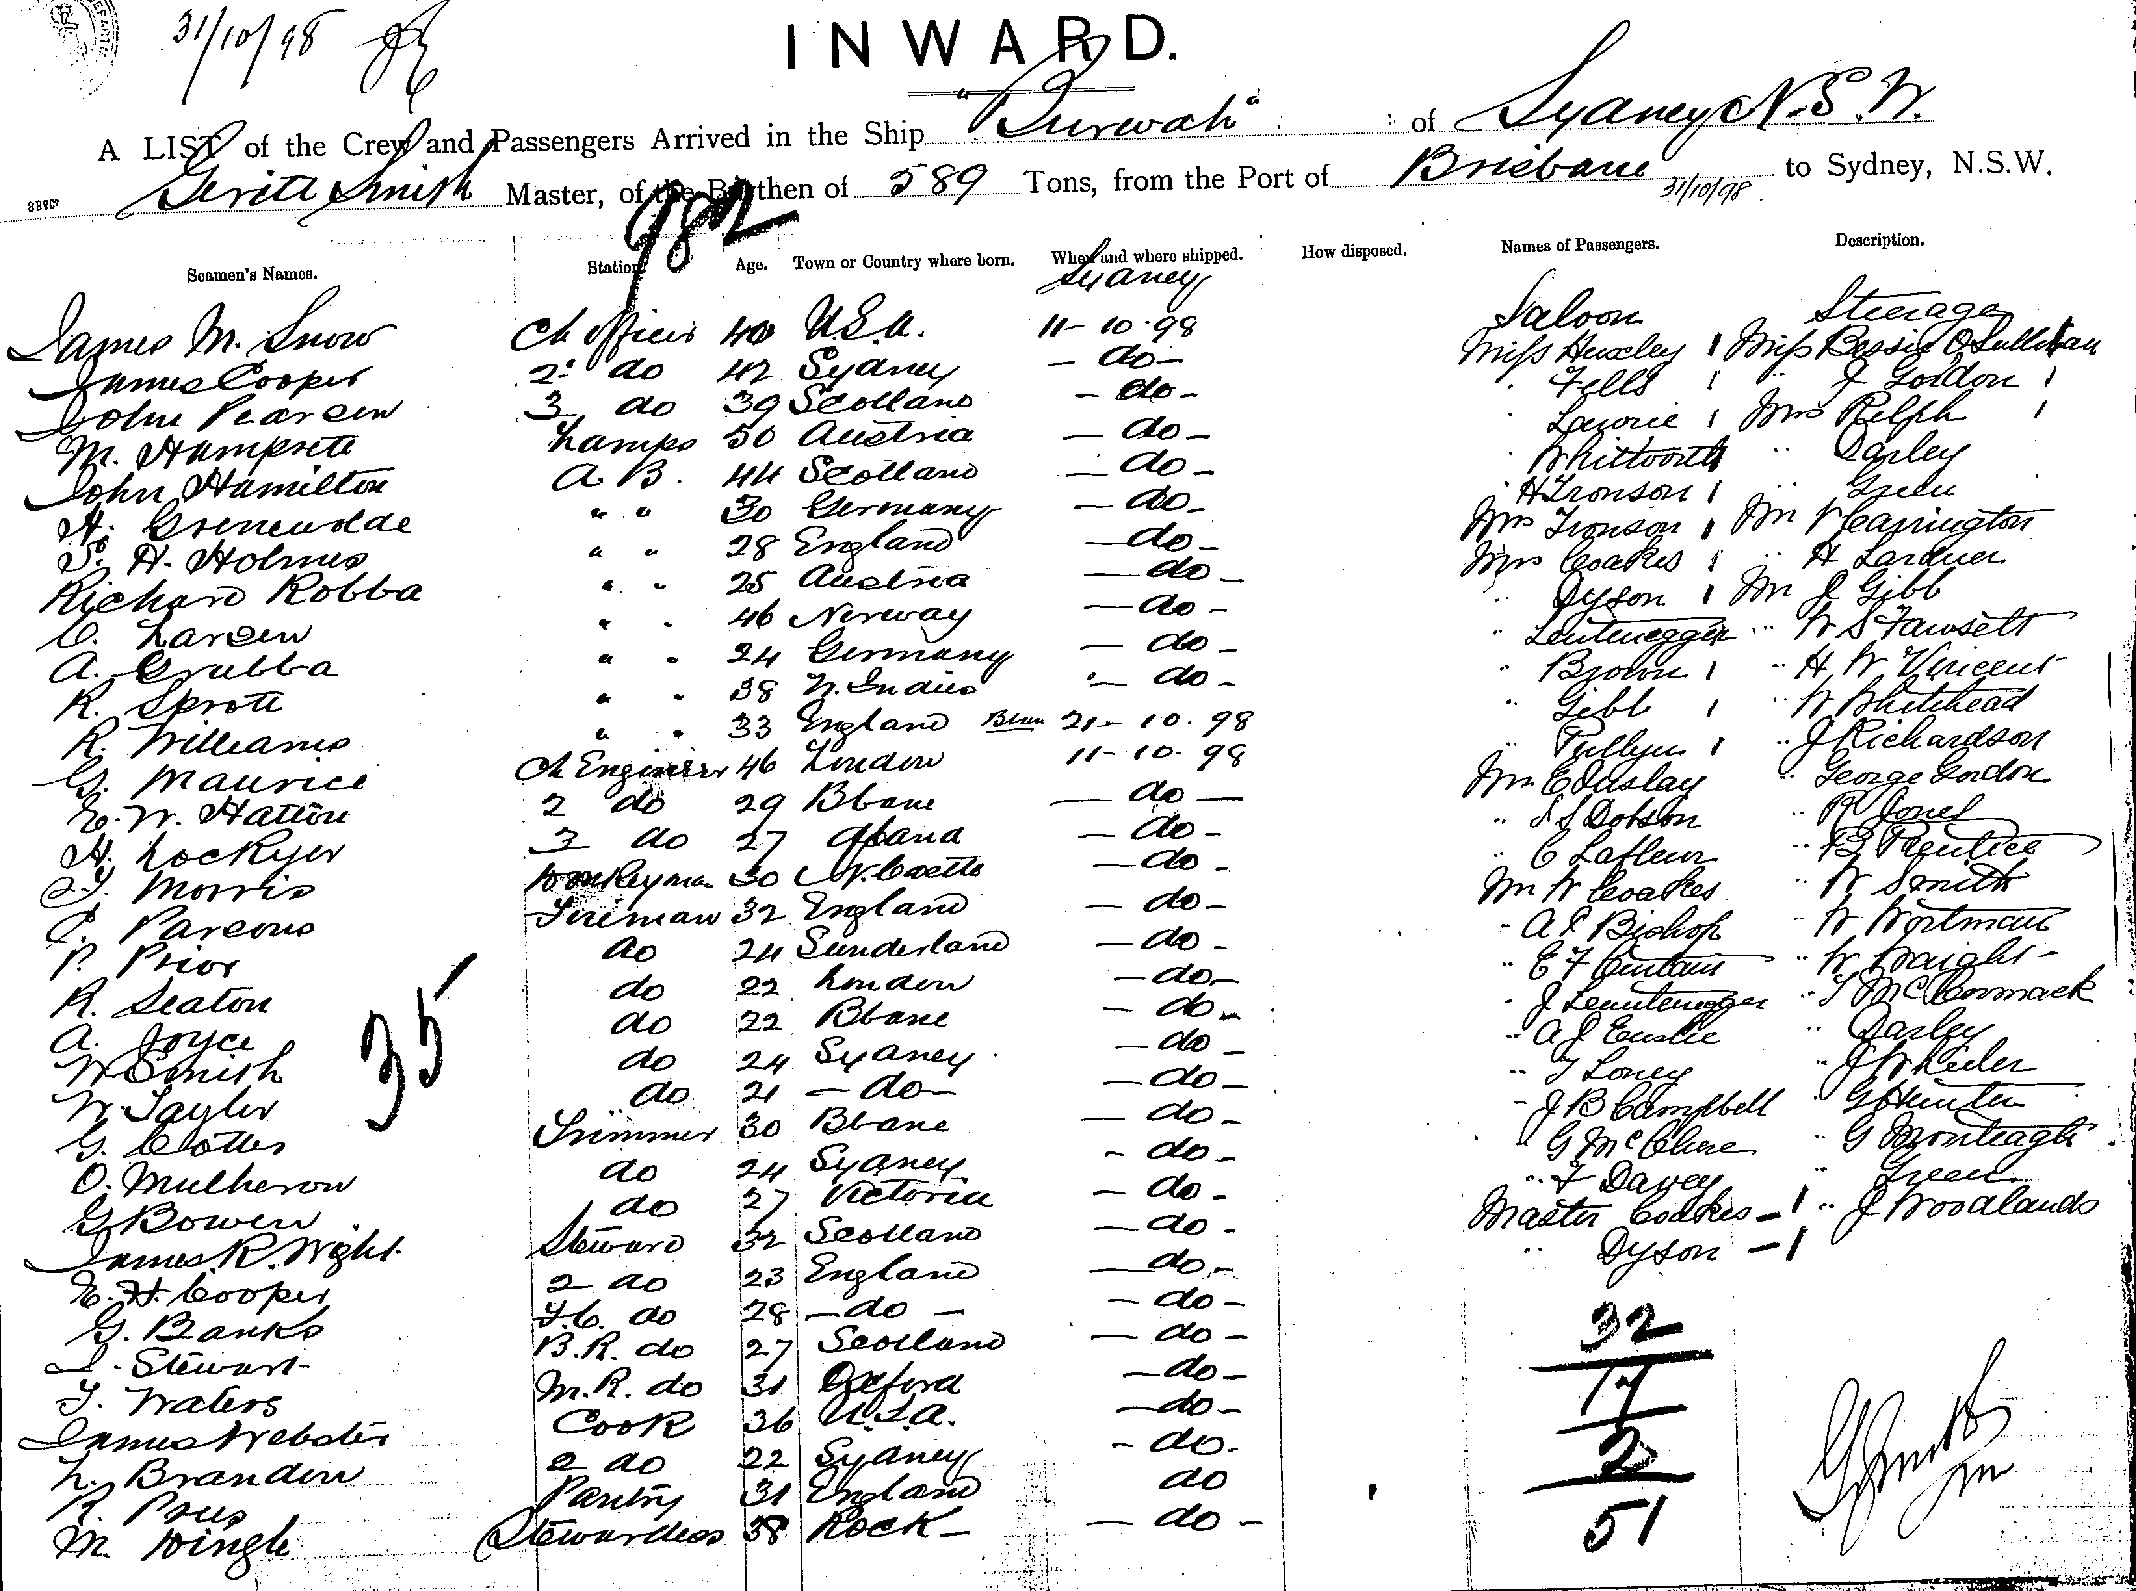 31/10/98
INWARD.
A LIST of the Crew and Passengers Arrived in the Ship "Burwah" of Sydney N.S.W.
Geritt Smith Master, of the Burthen of 589 Tons, from the Port of Brisbane 31/10/98 to Sydney, N.S.W.
982
Seamen's Names. Station. Age. Town or Country where born. When and where shipped. How disposed. Names of Passengers. Description.
Sydney
James M. Snow Ch officer 40 U.S.A. 11-10-98
James Cooper 2 do 42 Sydney - do -
John Pearsen 3 do 39 Scotland - do -
M. Lamps 50 Austria - do -
John Hamilton A. B. 44 Scotland - do -
H. " " 30 Germany - do -
S. H. Holmes " " 28 England - do -
Richard Robba " " 25 Austria - do -
C. Larsen " " 46 Norway - do -
A. Grubba " " 24 Germany - do -
R. Sprott " " 38 W. Indies - do -
R. Williams " " 33 England Bbne 21-10-98
G. Maurice Ch Engineer 46 London 11-10-98
E. W. Hatton 2 do 29 Bbane - do -
H. Lockyer 3 do 27 - do -
J. Morris Donkeyman 30 N. Castle - do -
C. Parsons Fireman 32 England - do -
P. Prior do 24 Sunderland - do -
R. Seaton do 22 London - do -
A. Joyce do 22 Bbane - do -
W Smith do 24 Sydney - do -
W. Taylor do 21 - do - - do -
G. Cotter Trimmer 30 Bbane - do -
O. Mulheron do 24 Sydney - do -
G Bowen do 27 Victoria - do -
James R. Wght Steward 32 Scotland - do -
E. H. Cooper 2 do 23 England - do -
G. Banks F.C. do 28 - do - - do -
J. Stewart B.R. do 27 Scotland - do -
T. Waters M.R. do 31 Oxford - do -
James Webster Cook 36 U.S.A. - do -
L. Brandon 2 do 22 Sydney - do -
R. Pantry 31 England do
M. Dingle Stewardess 38 Rock - do -
35
Saloon Steerage
Miss Huxley 1 Miss Bessie O'Sullivan
" Fells 1 " J Gordon 1
" Lawrie 1 Mrs Relph 1
" Whitworth " Darley
" H Tronson 1 " Green
Mrs Tronson 1 Mr W Carrington
Mrs Coakes 1 " H Lardner
" Dyson 1 Mr J Gibb
" Leutenegger " W S Fawsett
" Brown 1 " H W Vincent
" Gibb 1 " W Whitehead
" Pullyn 1 " J Richardson
Mr E " George Gordon
" Dobson " R Jones
" C Lafleur " B Prentice
Mr W Coakes " W Smith
" A E Bishop " W Wortman
" E F " W Wraight
" J Leutenegger " T McCormack
" A J " Darley
" T Loney " J W
" J B Campbell G Hunter
" G McClure " G Monteagle
" F Davey " Green
Master Coakes - 1 " J Woodlands
" Dyson - 1
32
17
2
51